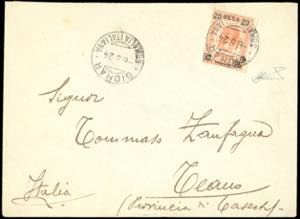 SOMALIA ITALIANA
GIOHAR
20 BESA 20
Signor
Tommaso Zanfagna
Teano
Italia
(Provincia di Caserta)